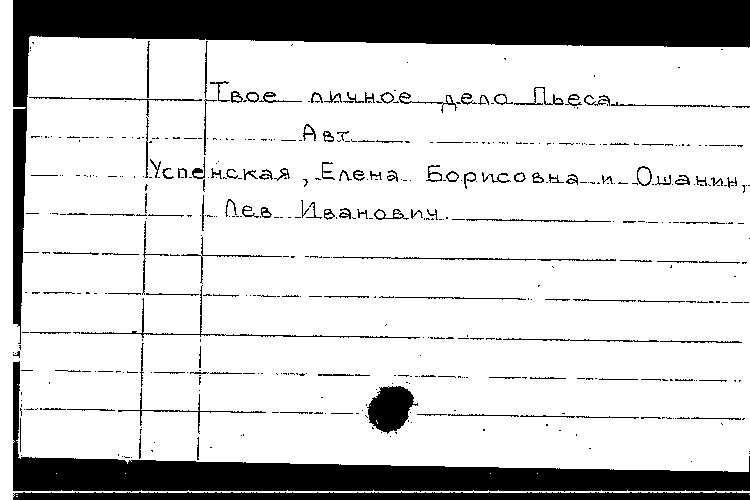 Твое личное дело Пьеса.
Авт.
Успенская, Елена Борисовна и Ошанин,
Лев Иванович.